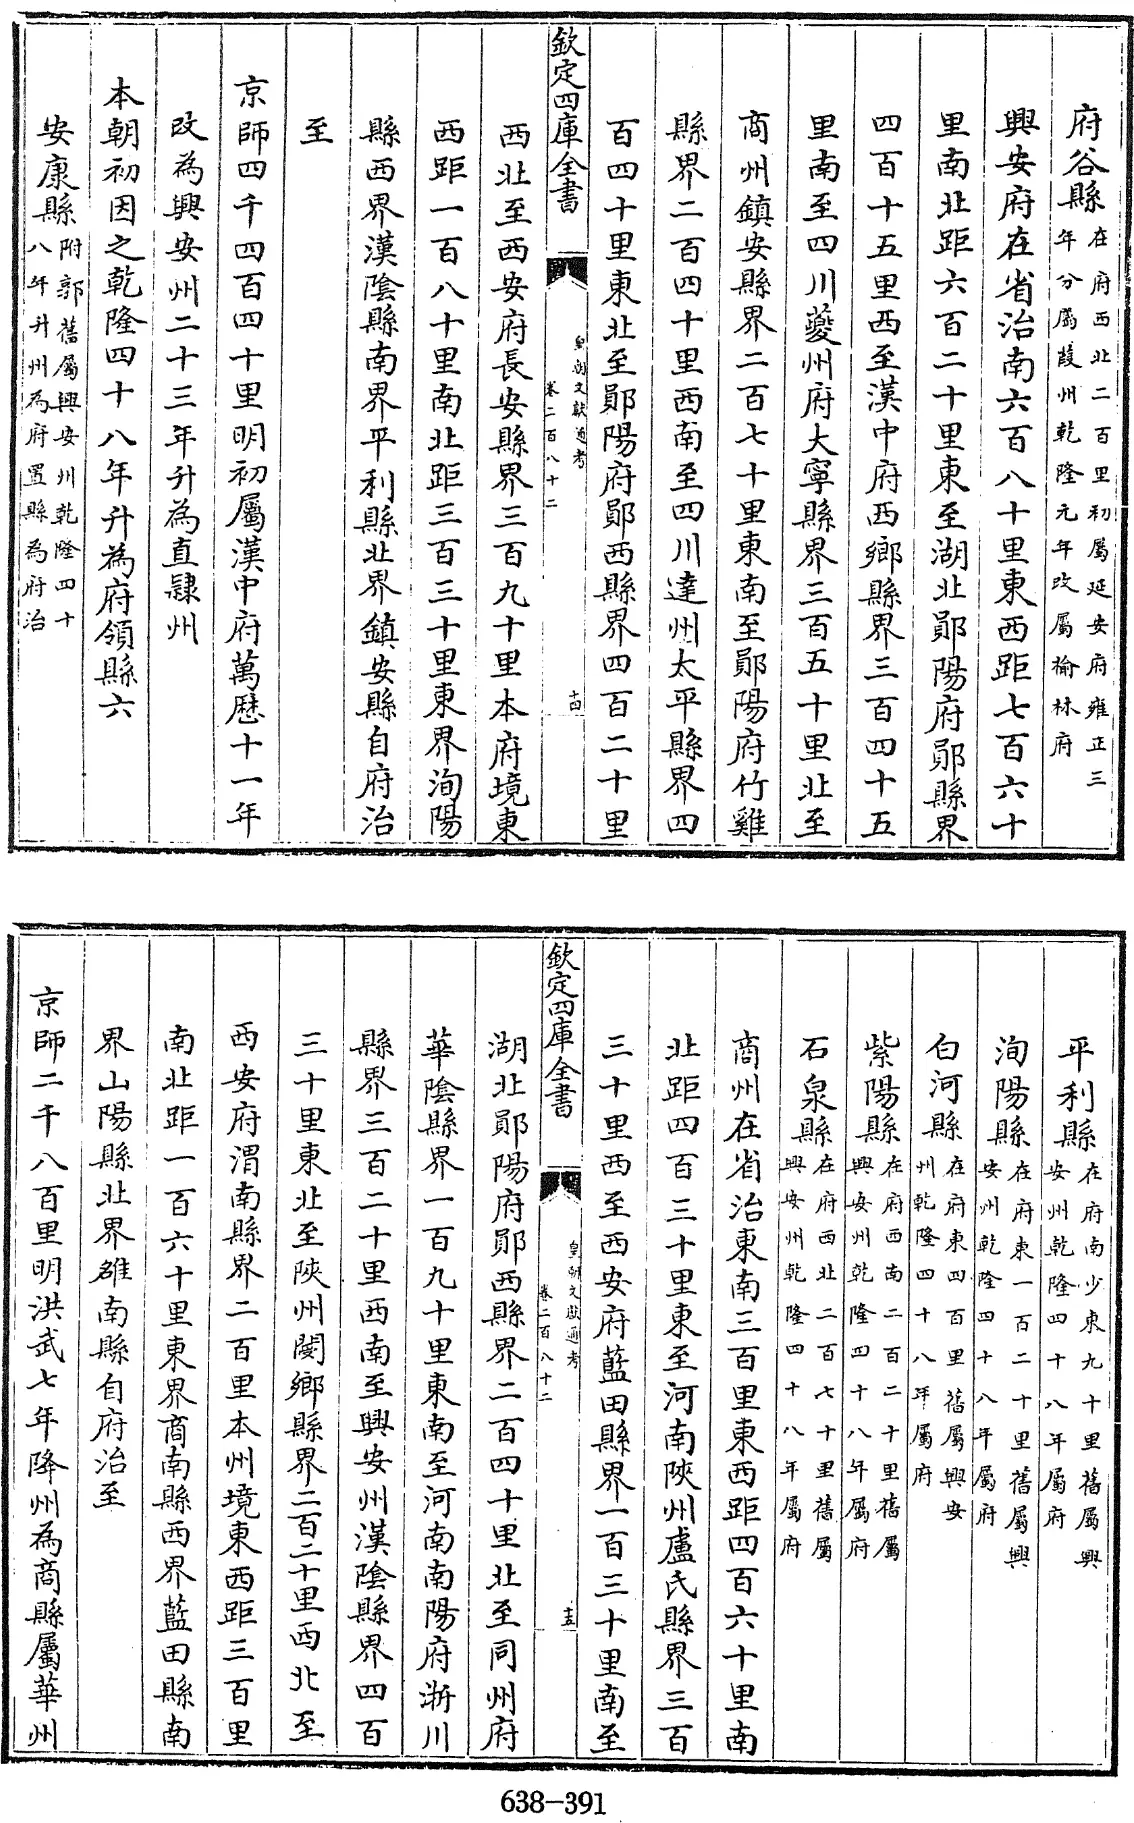 府谷縣在府西北二百里初屬延安府雍正三年分屬葭州乾隆元年改屬榆林府
興安府在省治南六百八十里東西距七百六十
里南北距六百二十里東至湖北鄖陽府鄖縣界
四百十五里西至漢中府西鄉縣界三百四十五
里南至四川夔州府大寧縣界三百五十里北至
商州鎮安縣界二百七十里東南至鄖陽府竹谿
縣界二百四十里西南至四川達州太平縣界四
百四十里東北至鄖陽府鄖西縣界四百二十里
欽定四庫全書
皇朝文獻通考
卷二百八十二
十四
西北至西安府長安縣界三百九十里本府境東
西距一百八十里南北距三百三十里東界洵陽
縣西界漢陰縣南界平利縣北界鎮安縣自府治
至
京師四千四百四十里明初屬漢中府萬歷十一年
改為興安州二十三年升為直隸州
本朝初因之乾隆四十八年升為府領縣六
安康縣附郭舊屬興安州乾隆四十八年升州為府置縣為府治
平利縣在府南少東九十里舊屬興安州乾隆四十八年屬府
洵陽縣在府東一百二十里舊屬興安州乾隆四十八年屬府
白河縣在府東四百里舊屬興安州乾隆四十八年屬府
紫陽縣在府西南二百二十里舊屬興安州乾隆四十八年屬府
石泉縣在府西北二百七十里舊屬興安州乾隆四十八年屬府
商州在省治東南三百里東西距四百六十里南
北距四百三十里東至河南陝州盧氏縣界三百
三十里西至西安府藍田縣界一百三十里南至
欽定四庫全書
皇朝文獻通考
卷二百八十二
十五
湖北鄖陽府鄖西縣界二百四十里北至同州府
華陰縣界一百九十里東南至河南南陽府淅川
縣界三百二十里西南至興安州漢陰縣界四百
三十里東北至陝州閿鄉縣界二百二十里西北至
西安府渭南縣界二百里本州境東西距三百里
南北距一百六十里東界商南縣西界藍田縣南
界山陽縣北界雒南縣自府治至
京師二千八百里明洪武七年降州為商縣屬華州
638-391